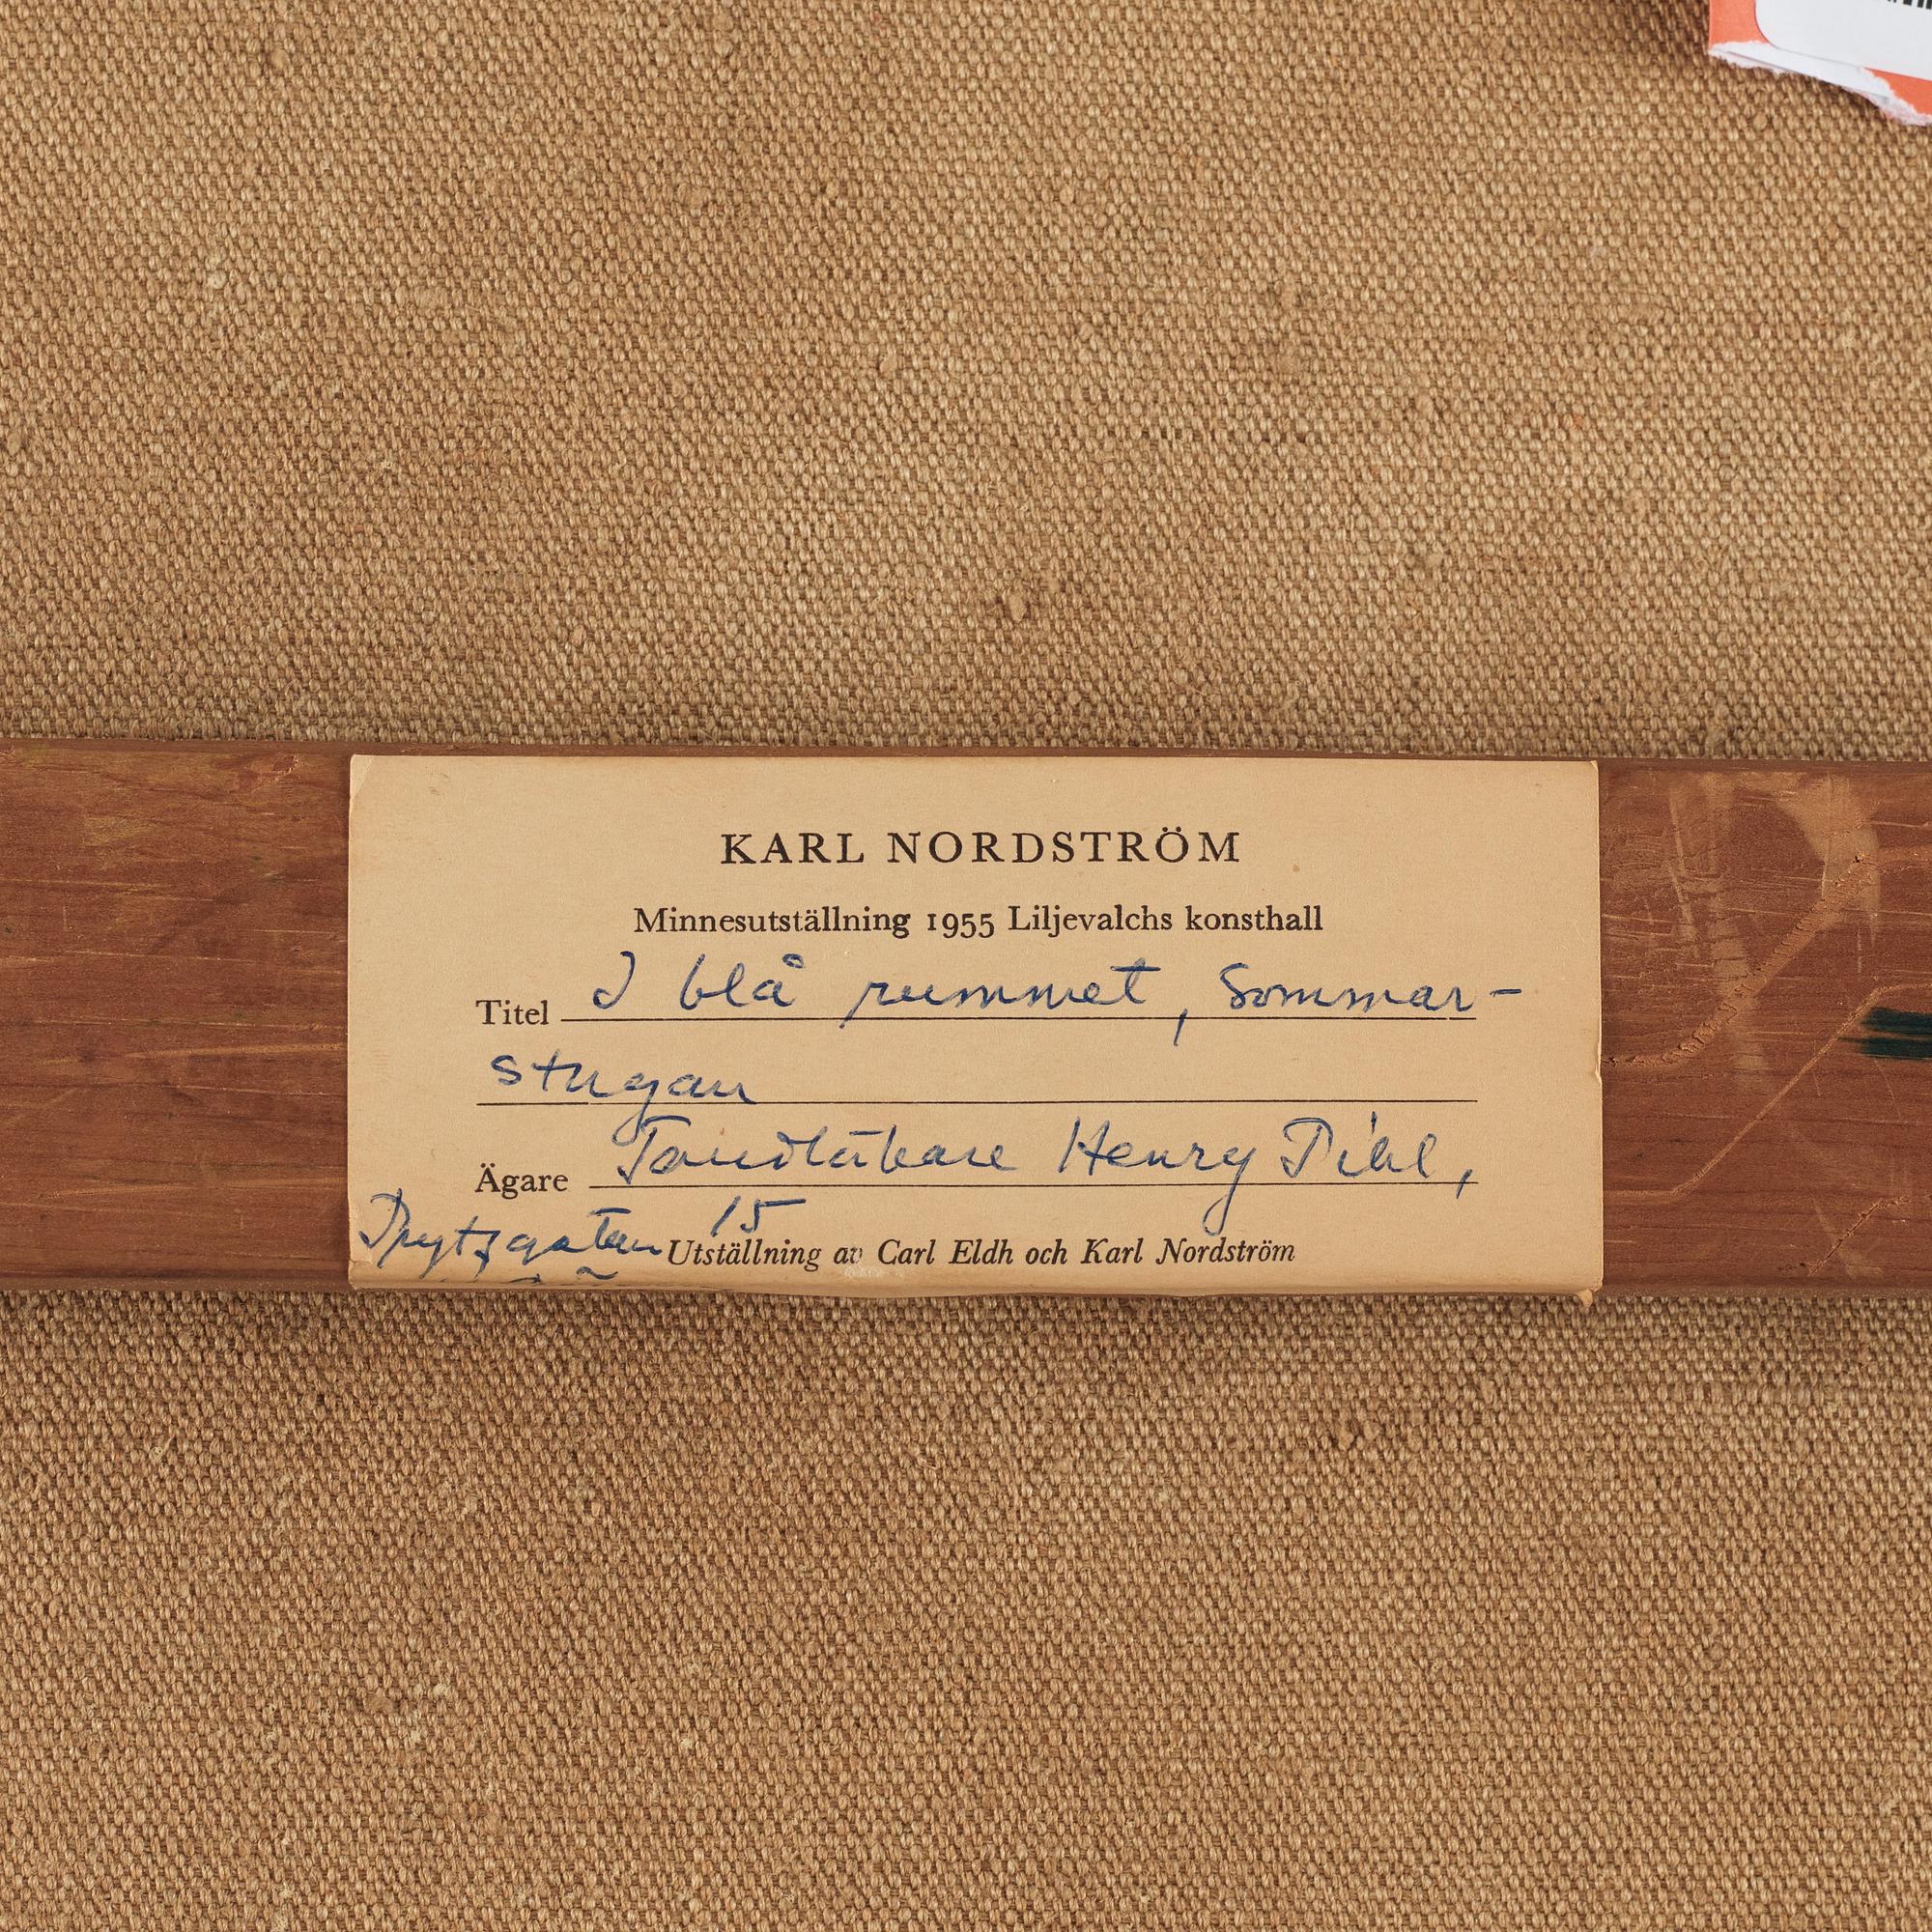 KARL NORDSTRÖM
Minnesutställning 1955 Liljevalchs konsthall
Titel I blå rummet, Sommar-
stugan
Ägare Tandläkare Henry Pihl,
Prytzgatan 15
Utställning av Carl Eldh och Karl Nordström